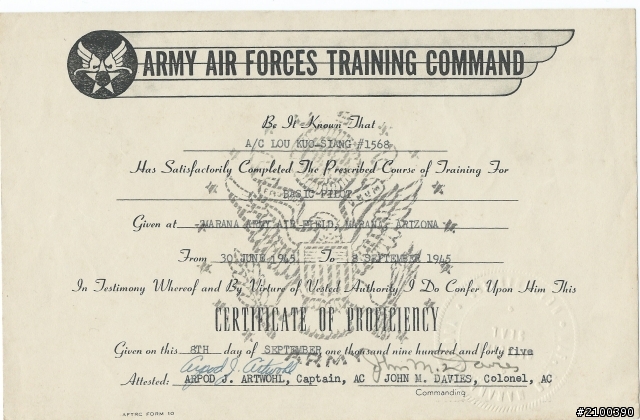 ARMY AIR FORCES TRAINING COMMAND
Be It Known That
A/C LOU KUO-SIANG #1568
Has Satisfactorily Completed The Prescribed Course of Training For
BASIC PILOT
Given at MARANA ARMY AIR FIELD, MARANA, ARIZONA
From 30 JUNE 1945 To 8 SEPTEMBER 1945
In Testimony Whereof and By Virtue of Vested Authority I Do Confer Upon Him This
CERTIFICATE OF PROFICIENCY
Given on this 8TH day of SEPTEMBER one thousand nine hundred and forty five
ARMY
Arpod J. Artwohl John M. Davies
Attested: ARPOD J. ARTWOHL, Captain, AC JOHN M. DAVIES, Colonel, AC
Commanding
AFTRC FORM 10
#2100390